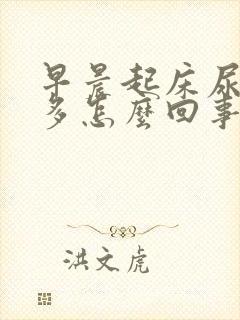 早晨起床尿
多怎麼回事
洪文虎